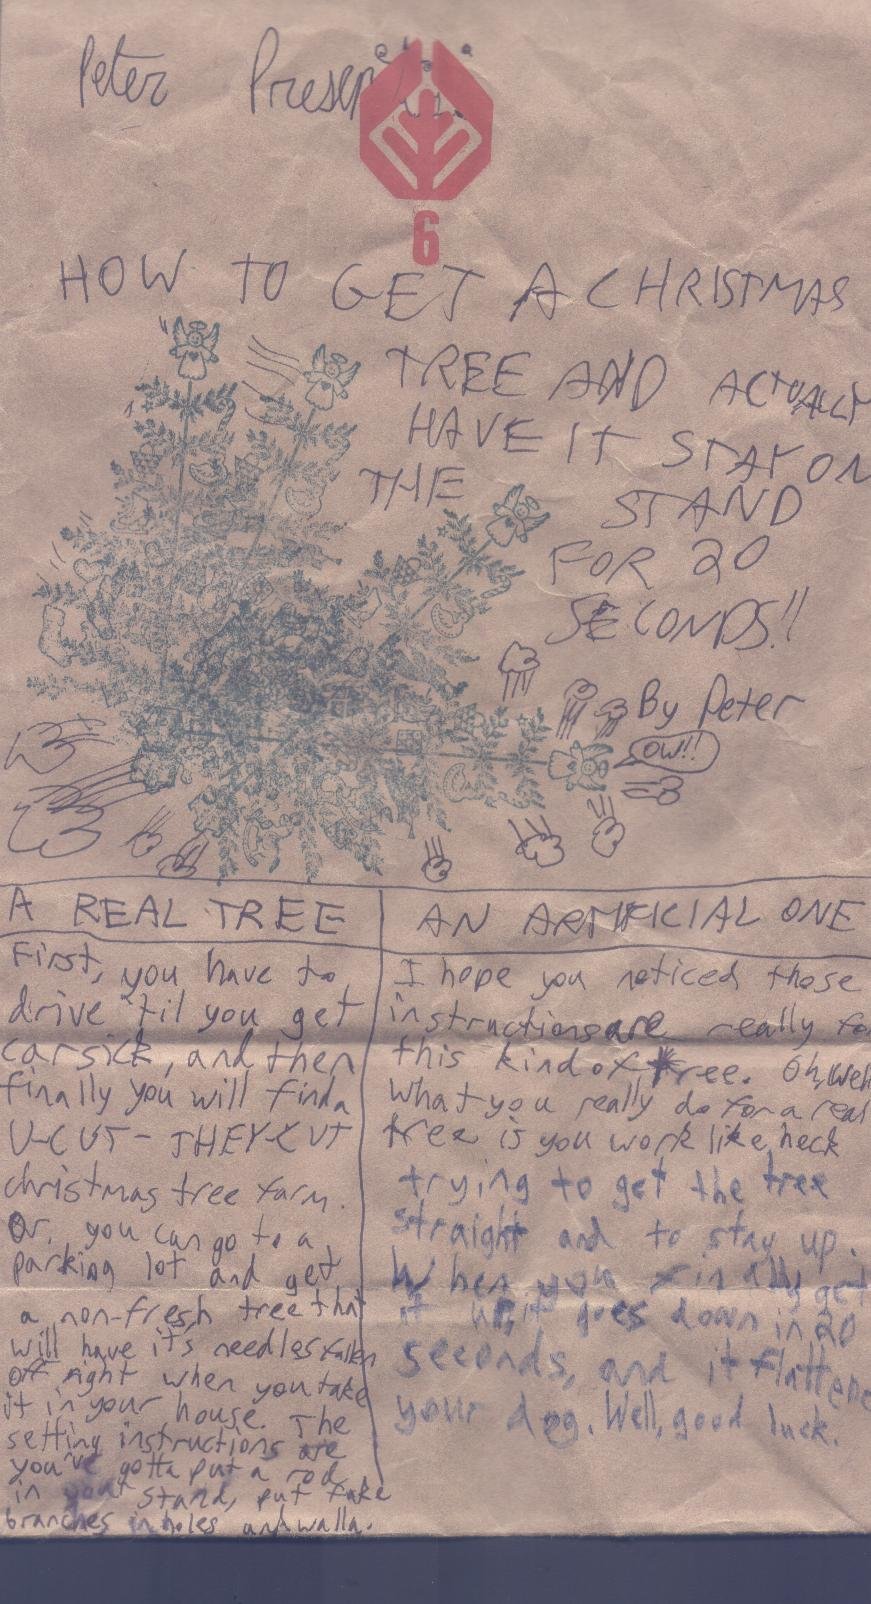 Peter Presents:
6
HOW TO GET A CHRISTMAS
TREE AND ACTUALLY
HAVE IT STAY ON
THE STAND
FOR 20
SECONDS!!
By Peter
OW!!
A REAL TREE
First, you have to
drive 'til you get
carsick, and then
finally you will find a
U-CUT-THEY-CUT
christmas tree farm.
Or, you can go to a
parking lot and get
a non-fresh tree that
will have it's needles fallen
off right when you take
it in your house. The
setting instructions are
you've gotta put a rod
in your stand, put fake
branches in holes and walla.
AN ARTIFICIAL ONE
I hope you noticed those
instructions are really for
this kind of tree. Oh, well
What you really do for a real
tree is you work like heck
trying to get the tree
straight and to stay up.
When you finally get
it up, it goes down in 20
seconds, and it flattens
your dog. Well, good luck.